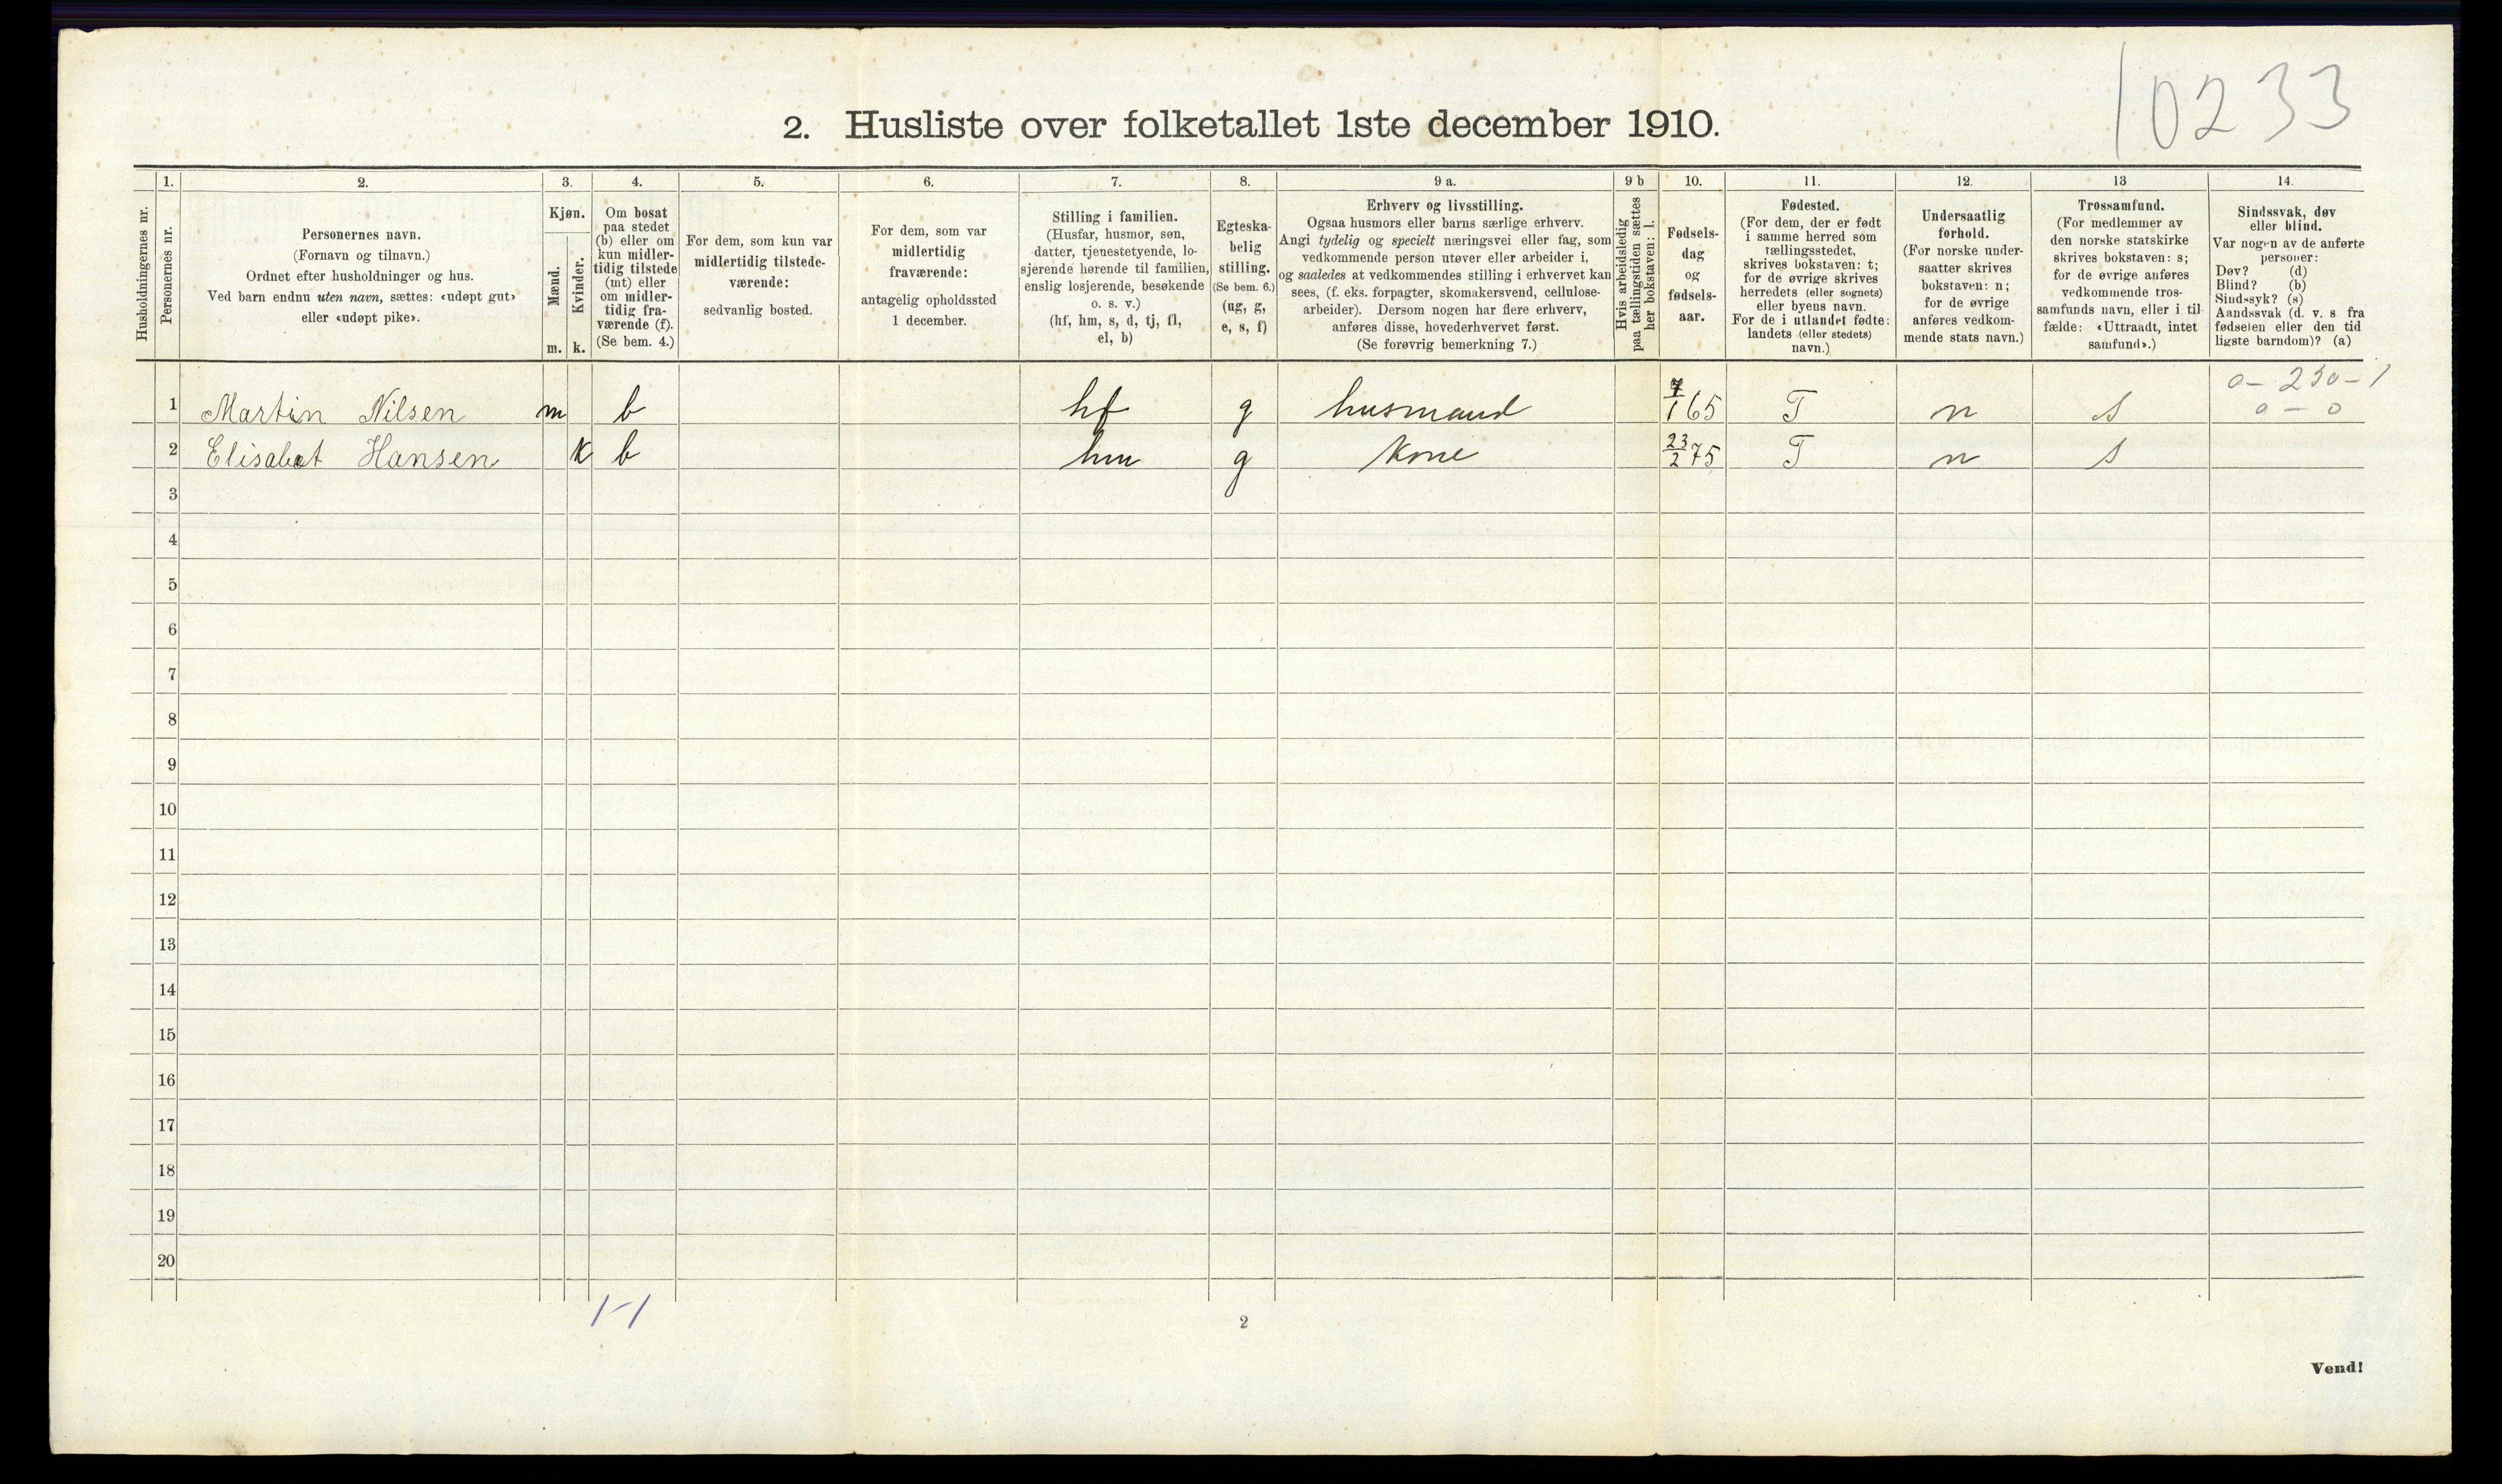 10233
2. Husliste over folketallet 1ste december 1910.
Husholdningernes nr.
1.
Personernes nr.
2.
Personernes navn.
(Fornavn og tilnavn.)
Ordnet efter husholdninger og hus.
Ved barn endnu uten navn, sættes: «udøpt gut»
eller «udøpt pike».
3.
Kjøn.
Mænd.
Kvinder.
m. k.
4.
Om bosat
paa stedet
(b) eller om
kun midler-
tidig tilstede
(mt) eller
om midler-
tidig fra-
værende (f).
(Se bem. 4.)
5.
For dem, som kun var
midlertidig tilstede-
værende:
sedvanlig bosted.
6.
For dem, som var
midlertidig
fraværende:
antagelig opholdssted
1 december.
7.
Stilling i familien.
(Husfar, husmor, søn,
datter, tjenestetyende, lo-
sjerende hørende til familien,
enslig losjerende, besøkende
o. s. v.)
(hf, hm, s, d, tj, fl,
el, b)
8.
Egteska-
belig
stilling.
(Se bem. 6.)
(ug, g,
e, s, f)
9 a.
Erhverv og livsstilling.
Ogsaa husmors eller barns særlige erhverv.
Angi tydelig og specielt næringsvei eller fag, som
vedkommende person utøver eller arbeider i,
og saaledes at vedkommendes stilling i erhvervet kan
sees, (f. eks. forpagter, skomakersvend, cellulose-
arbeider). Dersom nogen har flere erhverv,
anføres disse, hovederhvervet først.
(Se forøvrig bemerkning 7.)
9 b
Hvis arbeidsledig
paa tællingstiden sættes
her bokstaven: l.
10.
Fødsels-
dag
og
fødsels-
aar.
11.
Fødested.
(For dem, der er født
i samme herred som
tællingsstedet,
skrives bokstaven: t;
for de øvrige skrives
herredets (eller sognets)
eller byens navn.
For de i utlandet fødte:
landets (eller stedets)
navn.)
12.
Undersaatlig
forhold.
(For norske under-
saatter skrives
bokstaven: n;
for de øvrige
anføres vedkom-
mende stats navn.)
13
Trossamfund.
(For medlemmer av
den norske statskirke
skrives bokstaven: s;
for de øvrige anføres
vedkommende tros-
samfunds navn, eller i til-
fælde: «Uttraadt, intet
samfund».)
14.
Sindssvak, døv
eller blind.
Var nogen av de anførte
personer:
Døv? (d)
Blind? (b)
Sindssyk? (s)
Aandssvak (d. v. s. fra
fødselen eller den tid
ligste barndom)? (a)
0 – 230 – 1
0 – 0
1 Martin Nilsen m b hf g husmand 7/1 65 T n s
2 Elisabet Hansen k b hm g Kone 23/2 75 T n s
3
4
5
6
7
8
9
10
11
12
13
14
15
16
17
18
19
20
1-1
2
Vend!